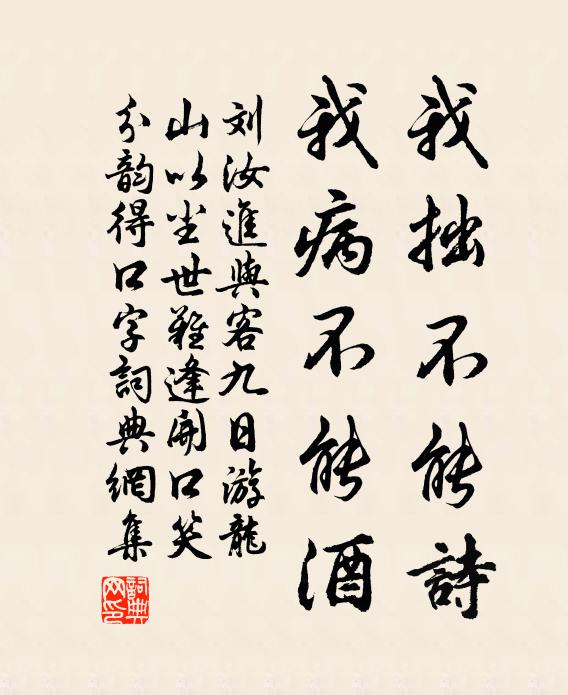 我拙不能詩
我病不能酒
刘汝進與客九日游龍
山以尘世難逢開口笑
分韵得口字詞典網集
詞典網印